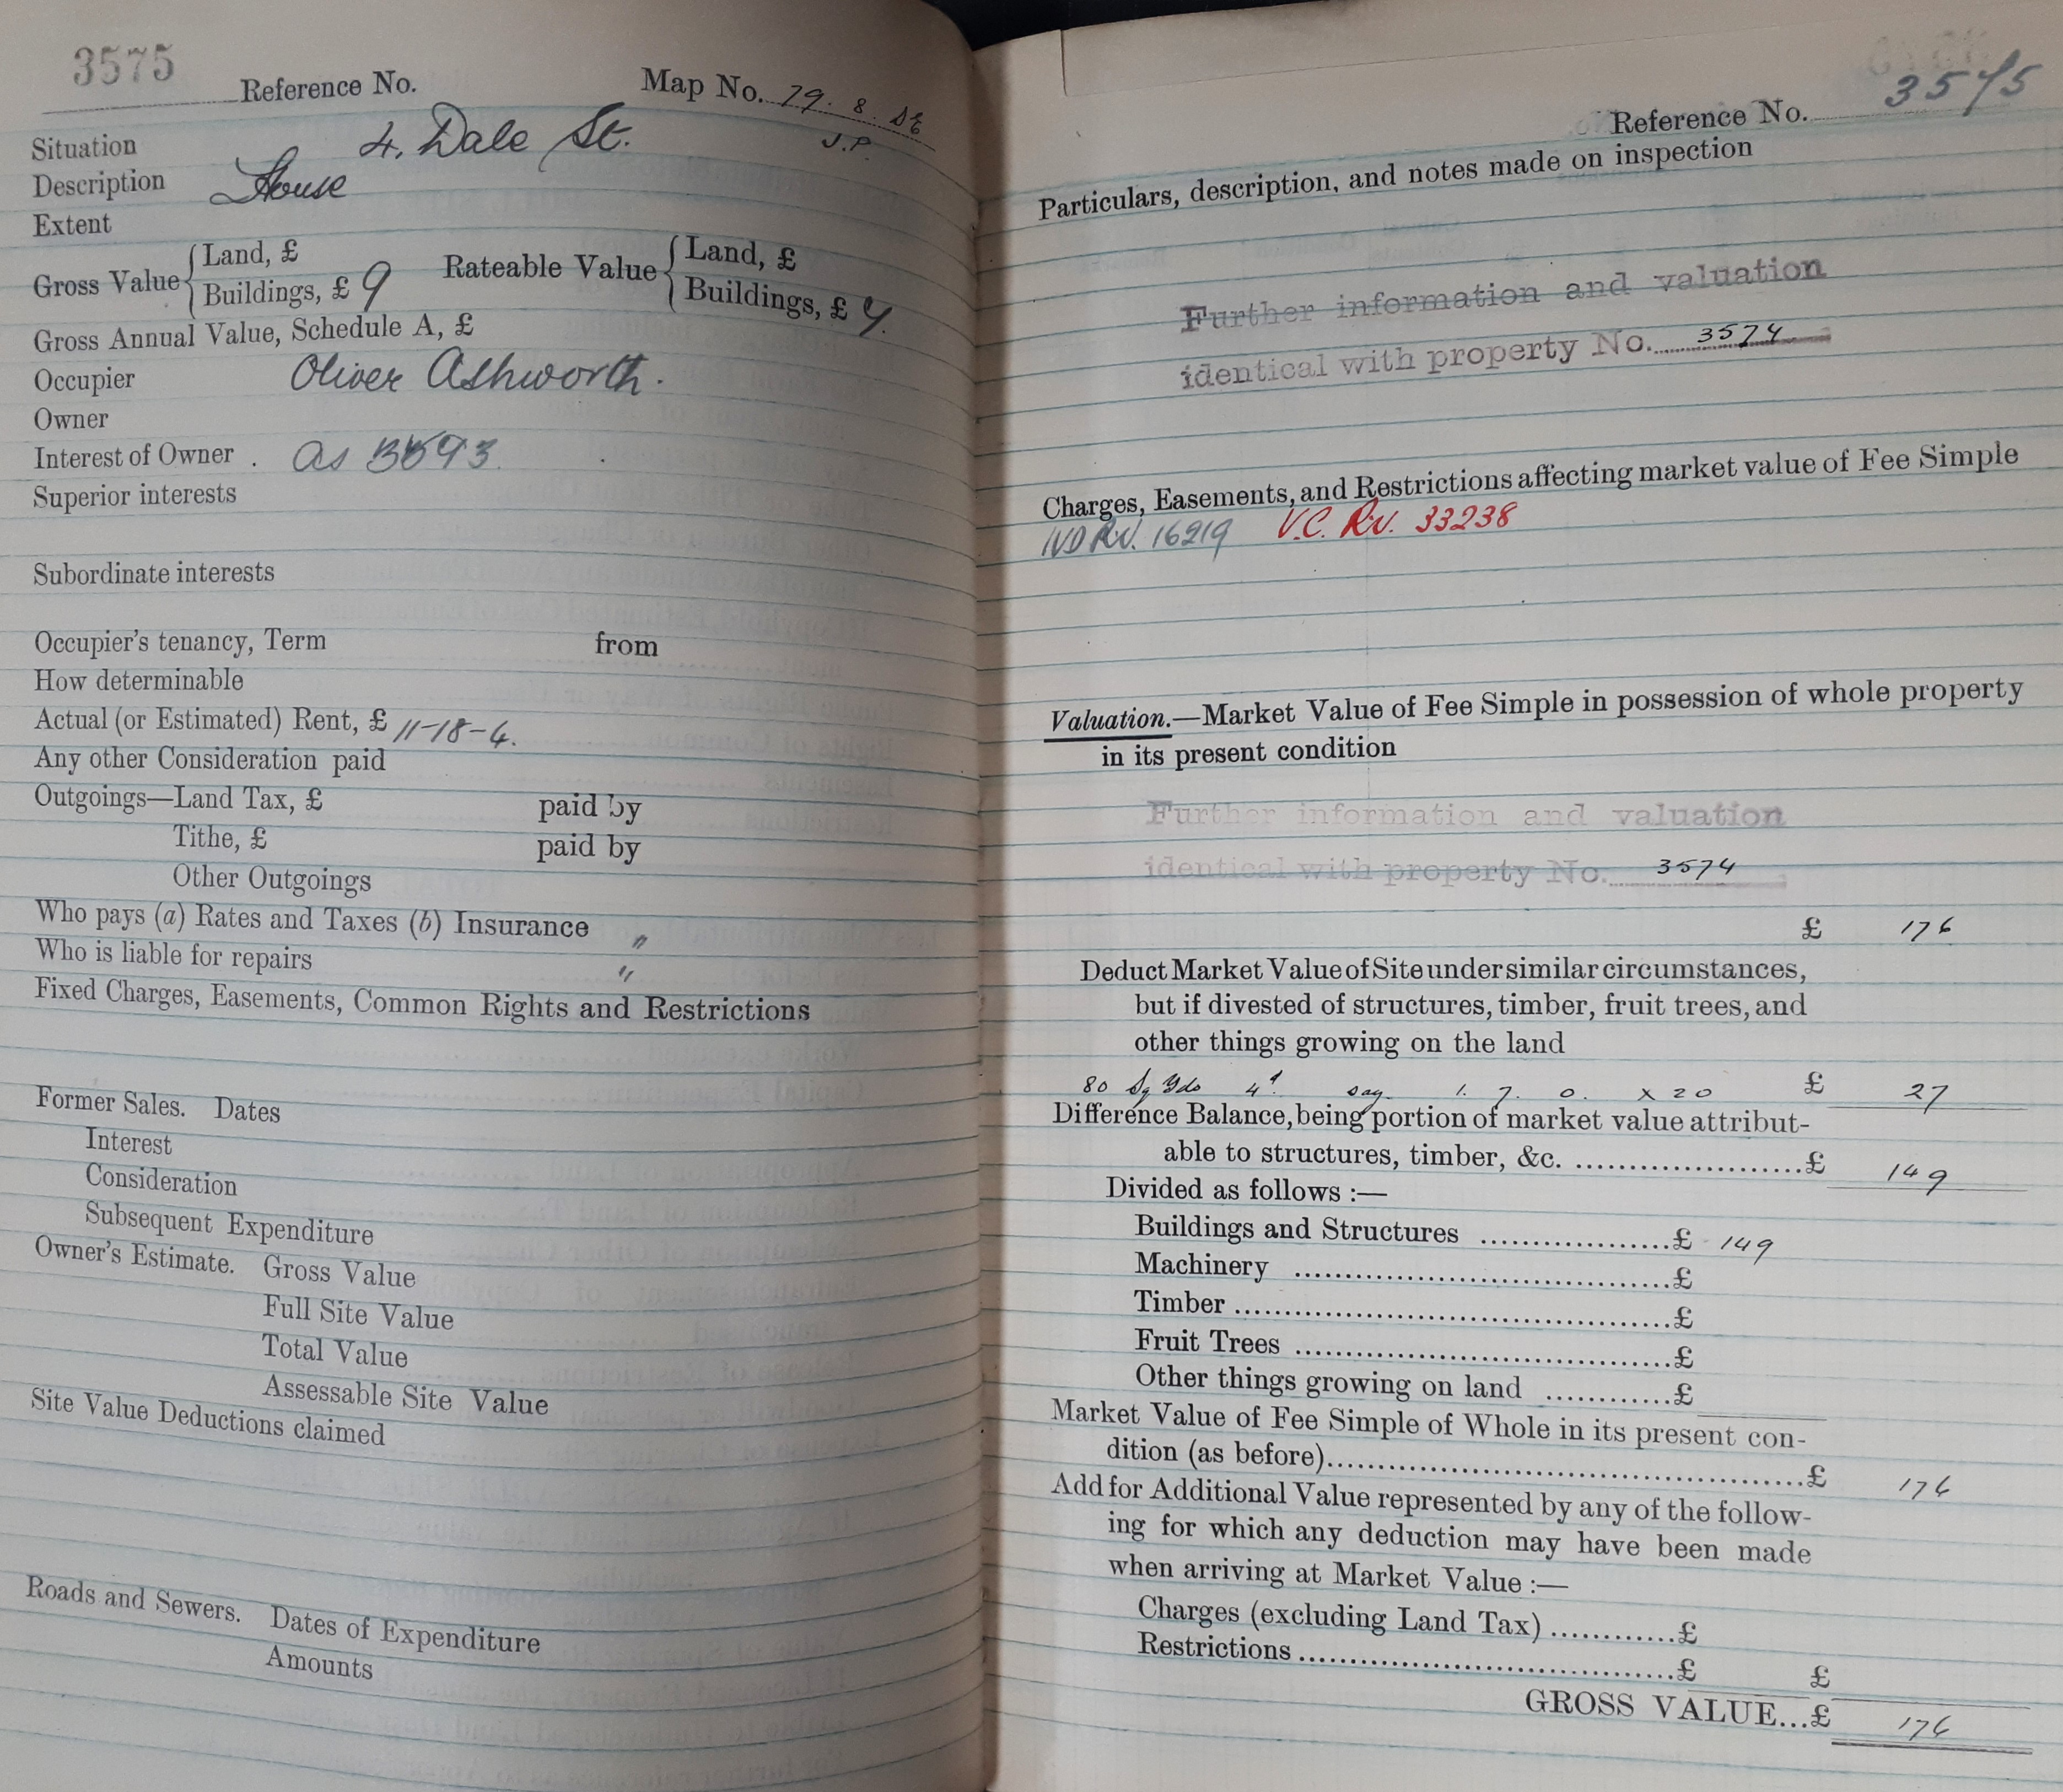 3575
Reference No.
Map No. 79. 8. SE
J.P.
Situation 4, Dale St.
Description House
Extent
Gross Value { Land, £
Buildings, £ 9
Rateable Value { Land, £
Buildings, £ 7.
Gross Annual Value, Schedule A, £
Occupier Oliver Ashworth.
Owner
Interest of Owner . as 3593.
Superior interests
Subordinate interests
Occupier's tenancy, Term from
How determinable
Actual (or Estimated) Rent, £ 11-18-4.
Any other Consideration paid
Outgoings—Land Tax, £ paid by
Tithe, £ paid by
Other Outgoings
Who pays (a) Rates and Taxes (b) Insurance "
Who is liable for repairs "
Fixed Charges, Easements, Common Rights and Restrictions
Former Sales. Dates
Interest
Consideration
Subsequent Expenditure
Owner's Estimate. Gross Value
Full Site Value
Total Value
Assessable Site Value
Site Value Deductions claimed
Roads and Sewers. Dates of Expenditure
Amounts
Reference No. 3575
Particulars, description, and notes made on inspection
Further information and valuation
identical with property No. 3574
Charges, Easements, and Restrictions affecting market value of Fee Simple
IVD Rv. 16219 V.C. Rv. 33238
Valuation.—Market Value of Fee Simple in possession of whole property
in its present condition
Further information and valuation
identical with property No. 3574
£ 176
Deduct Market Value of Site under similar circumstances,
but if divested of structures, timber, fruit trees, and
other things growing on the land
80 Sq Yds 4d say 1. 7. 0. x 20 £ 27
Difference Balance, being portion of market value attribut-
able to structures, timber, &c. ........................£ 149
Divided as follows :—
Buildings and Structures ....................£ 149
Machinery ........................................£
Timber ..............................................£
Fruit Trees ........................................£
Other things growing on land .............£
Market Value of Fee Simple of Whole in its present con-
dition (as before)..................................................£ 176
Add for Additional Value represented by any of the follow-
ing for which any deduction may have been made
when arriving at Market Value :—
Charges (excluding Land Tax) ............£
Restrictions ........................................£ £
GROSS VALUE...£ 176